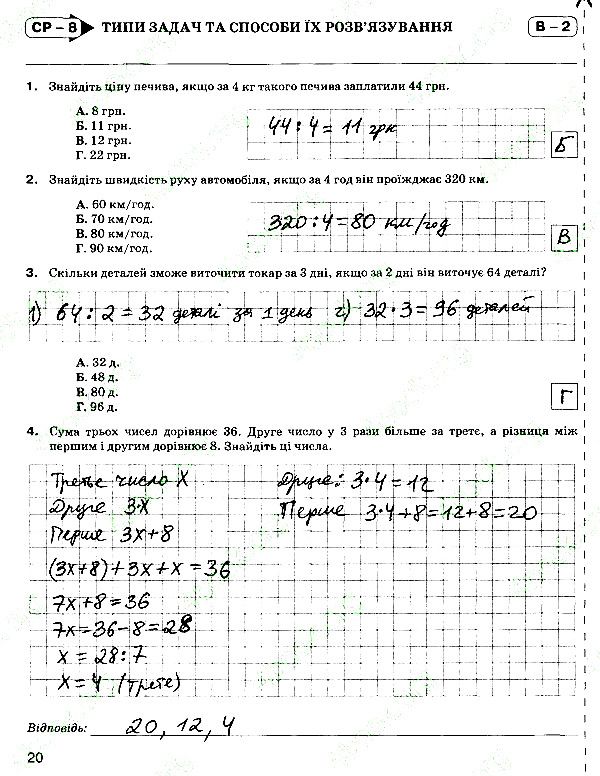 СР – 8 ТИПИ ЗАДАЧ ТА СПОСОБИ ЇХ РОЗВ'ЯЗУВАННЯ В – 2
1. Знайдіть ціну печива, якщо за 4 кг такого печива заплатили 44 грн.
А. 8 грн.
Б. 11 грн.
В. 12 грн.
Г. 22 грн.
44 : 4 = 11 грн
Б
2. Знайдіть швидкість руху автомобіля, якщо за 4 год він проїжджає 320 км.
А. 60 км/год.
Б. 70 км/год.
В. 80 км/год.
Г. 90 км/год.
320 : 4 = 80 км/год
В
3. Скільки деталей зможе виточити токар за 3 дні, якщо за 2 дні він виточує 64 деталі?
1) 64 : 2 = 32 деталі за 1 день 2) 32 · 3 = 96 деталей
А. 32 д.
Б. 48 д.
В. 80 д.
Г. 96 д.
Г
4. Сума трьох чисел дорівнює 36. Друге число у 3 рази більше за третє, а різниця між
першим і другим дорівнює 8. Знайдіть ці числа.
Третє число X
Друге 3·X
Перше 3X+8
(3X+8)+3X+X=36
7X+8=36
7X=36–8=28
X=28:7
X=4 (третє)
Друге: 3·4=12
Перше 3·4+8=12+8=20
Відповідь: 20, 12, 4
20